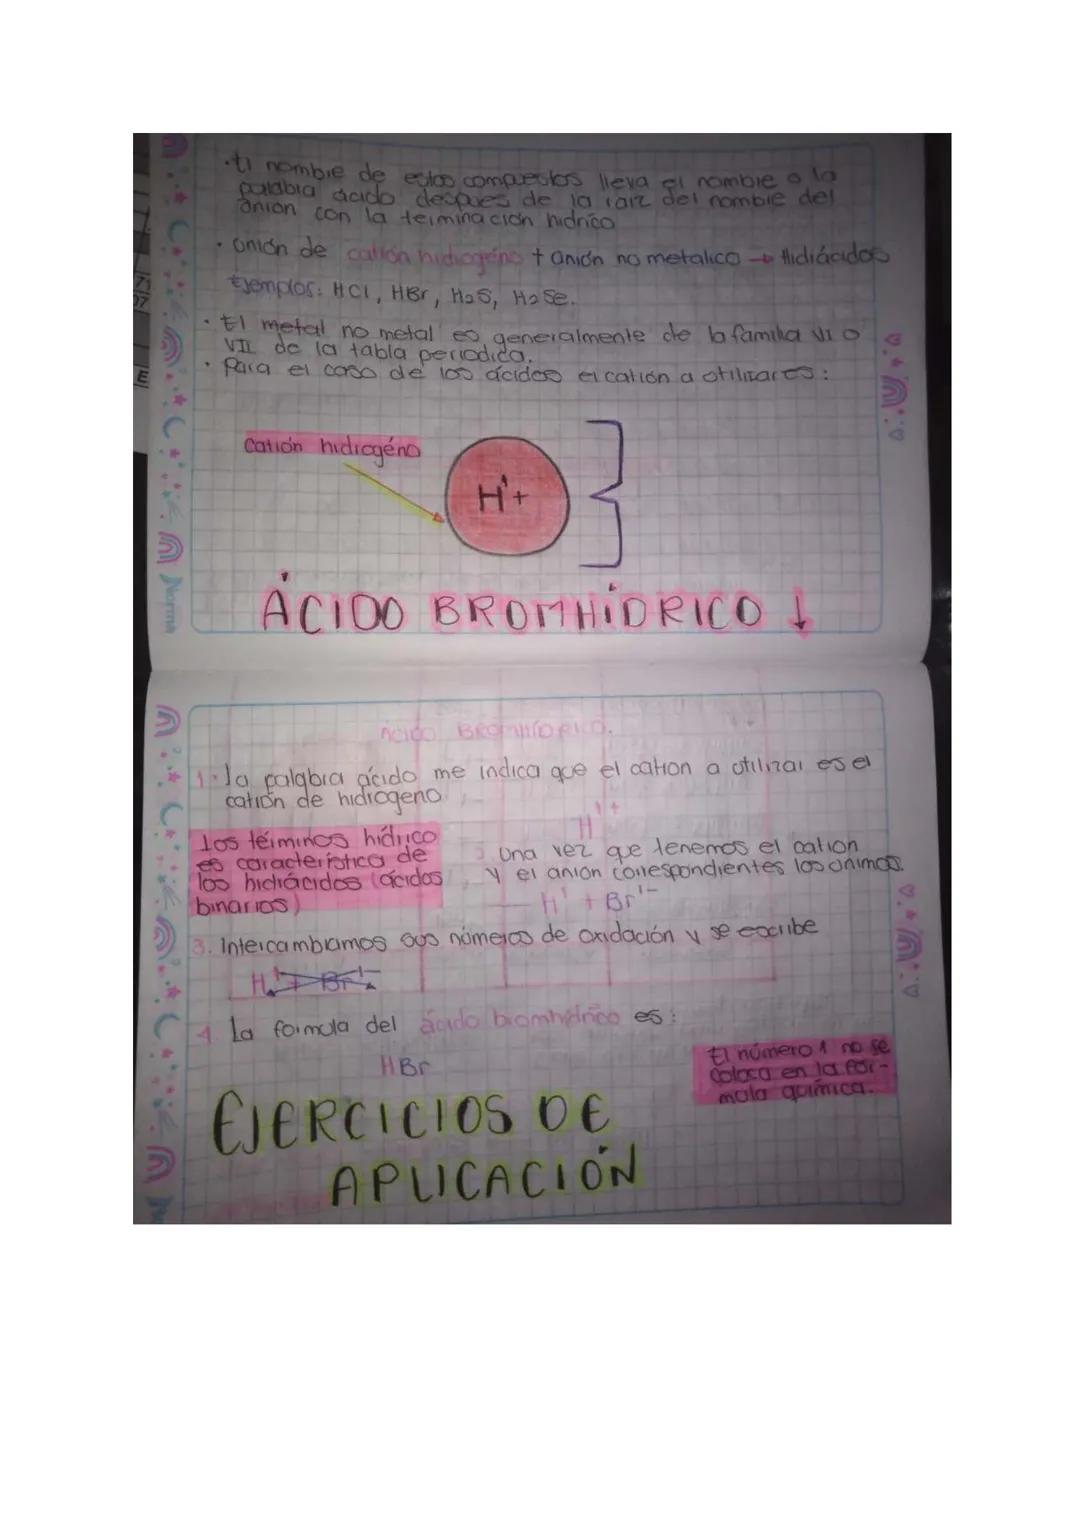 · El nombre de estos compuestos lleva el nombre o la
palabra ácido después de la raiz del nombre del
anión con la terminación hidrico
· Unión de catión hidrogéno + anión no metalico → Hidrácidos
Ejemplos: HCl, HBr, H2S, H2Se.
· El metal no metal es generalmente de la familia VI o
VII de la tabla periodica.
· Para el caso de los ácidos el catión a utilizar es:
Catión hidrogéno
H¹+
ÁCIDO BROMHÍDRICO ↓
Norma
ÁCIDO BROMHÍDRICO.
1. la palabra ácido me indica que el cation a utilizar es el
catión de hidrogeno
H¹+
Los términos hídrico
es característico de
los hidrácidos (ácidos
binarios)
Una vez que tenemos el cation
y el anion correspondientes los unimos.
H¹ + Br¹-
3. Intercambiamos sus números de oxidación y se escribe
H¹+ Br¹-
4. La formula del ácido bromhídrico es:
HBr
El número 1 no se
coloca en la fór-
mula química.
EJERCICIOS DE
APLICACIÓN